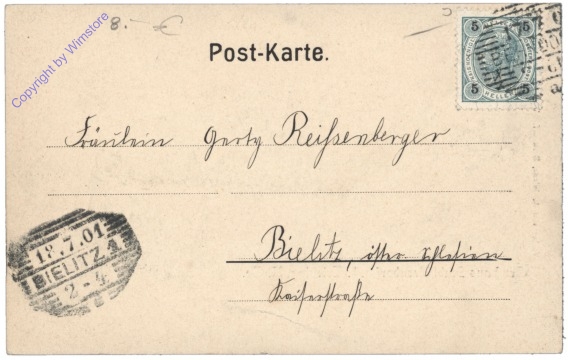 8.- €
Copyright by Wimstore
Post-Karte.
5 5
5 HELLER 5
Fräulein Gerty Reißenberger
Bielitz, österr. Schlesien
Kaiserstraße
18.7.01
BIELITZ 1
2-4